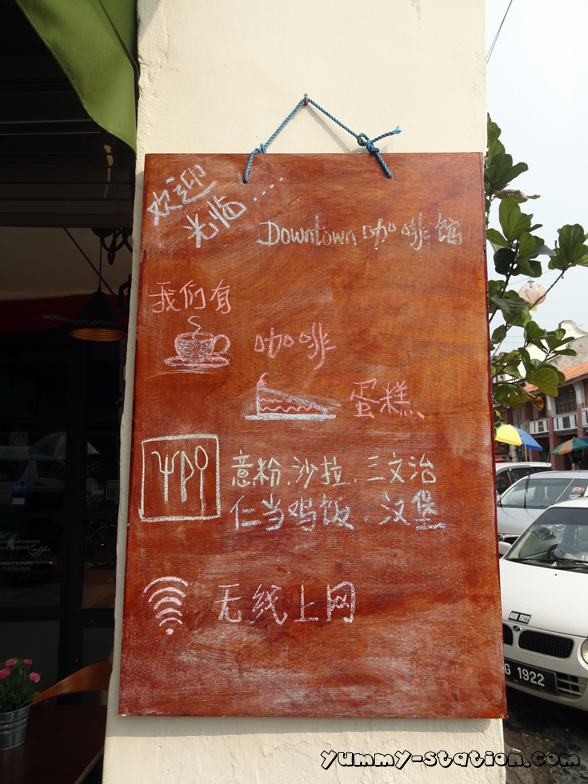 欢迎
光临....
Downtown 咖啡馆
我们有
咖啡
蛋糕、
意粉.沙拉.三文治
仁当鸡饭.汉堡
无线上网
1922
G 1922
yummy-station.com